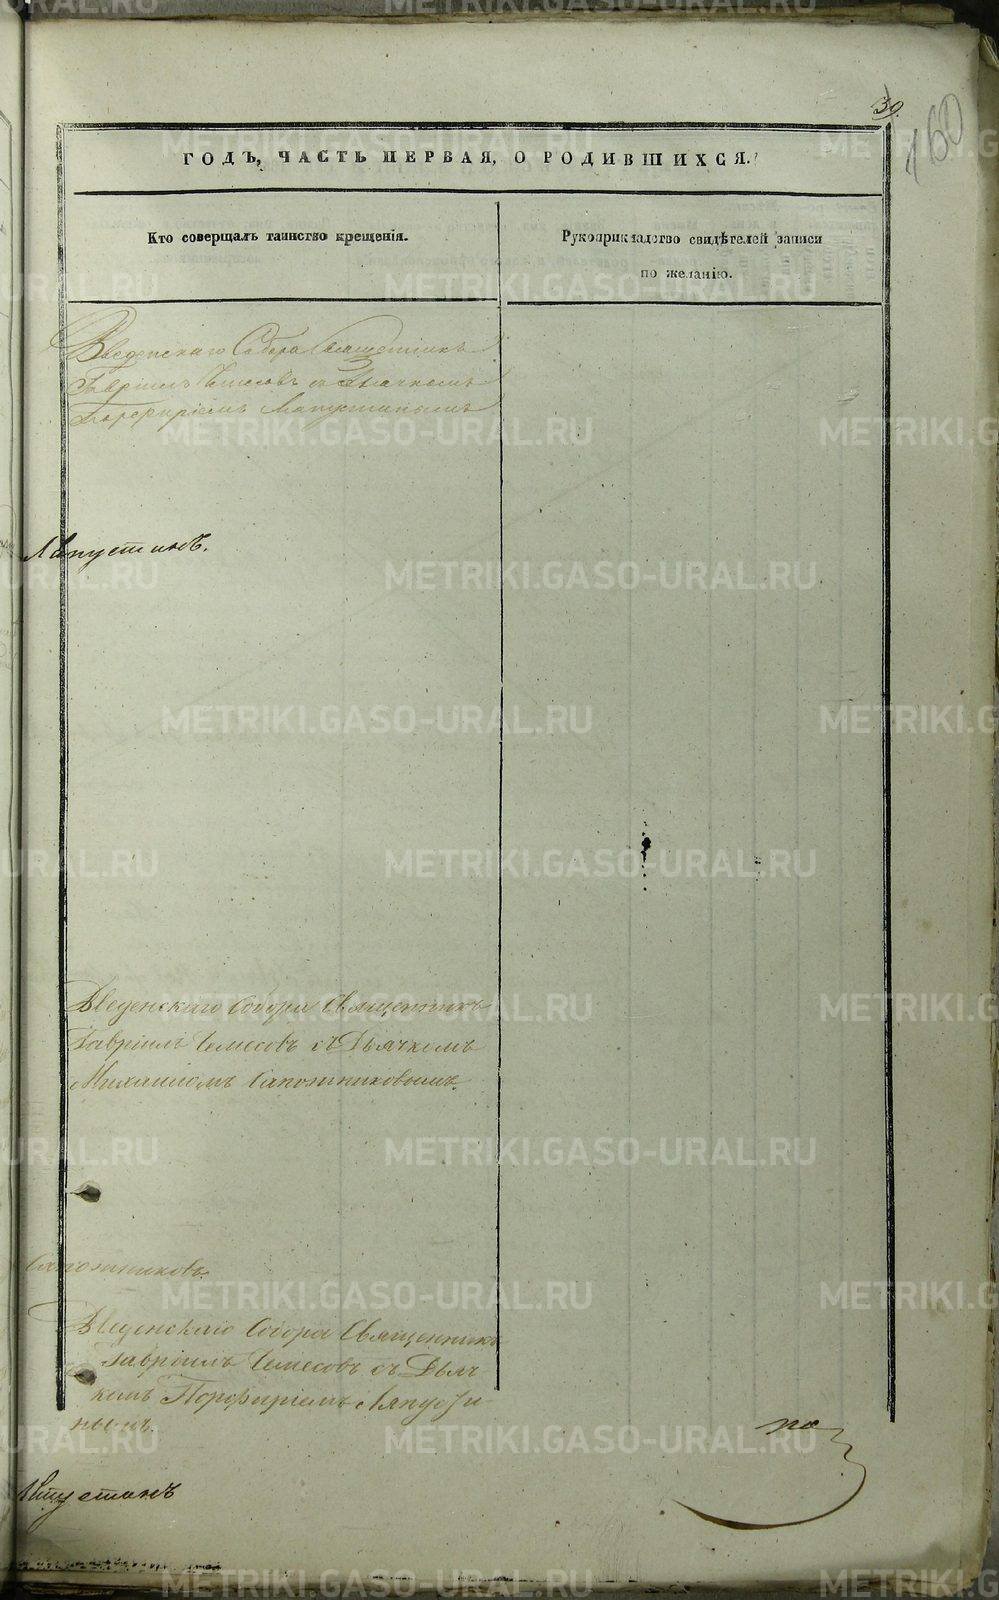 30.
160
ГОДЪ, ЧАСТЬ ПЕРВАЯ, О РОДИВШИХСЯ.
Кто совершалъ таинство крещенія.
Рукоприкладство свидѣтелей записи
по желанію.
Введенскаго Собора Священникъ
Гавріилъ Чемесовъ съ Дьячкомъ
Порфиріемъ Лапустинымъ
Лапустинъ.
Введенскаго Собора Священникъ
Гавріилъ Чемесовъ съ Дьячкомъ
Михаиломъ Сапожниковымъ.
Сапожниковъ.
Введенскаго Собора Священникъ
Гавріилъ Чемесовъ съ Дьяч
комъ Порфиріемъ Лапусти-
нымъ.
по
Лапустинъ
METRIKI.GASO-URAL.RU